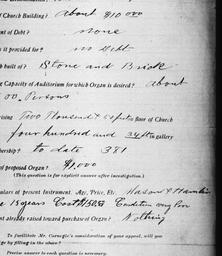 Church Building? About $10000
nt of Debt? none
s it provided for? no debt
h built of? Stone and Brick
g Capacity of Auditorium for which Organ is desired? About
00 Persons
Two Thousand & floor of Church
four hundred and in gallery
bership? to date 381
of proposed Organ? $1,000
(This question is for explicit answer after investigation.)
ulars of present Instrument. Age, Price, Etc. Mason & Hamlin
15 years Cost $ Condition very Poor
nt already raised toward purchase of Organ? Nothing
To facilitate Mr. Carnegie's consideration of your appeal, will you
ge by filling in the above?
Precise answer to each question is necessary.